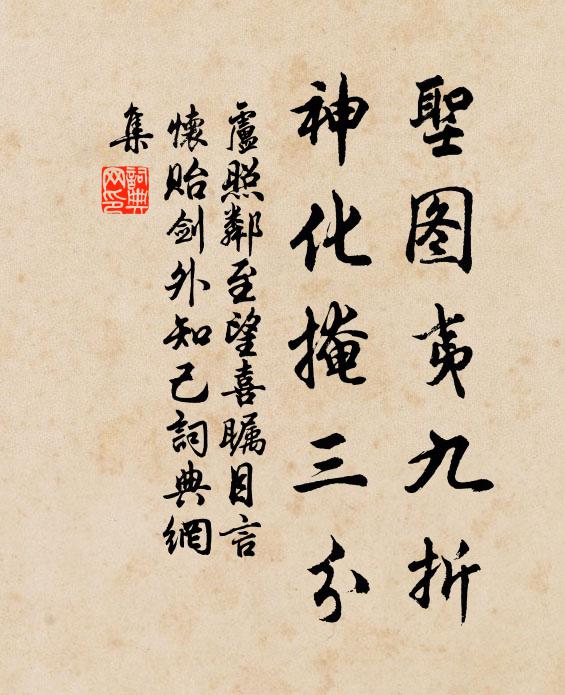 聖图夷九折
神化掩三分
盧照鄰至望喜瞩目言
懷貽剑外知己詞典網
集
詞典
网印